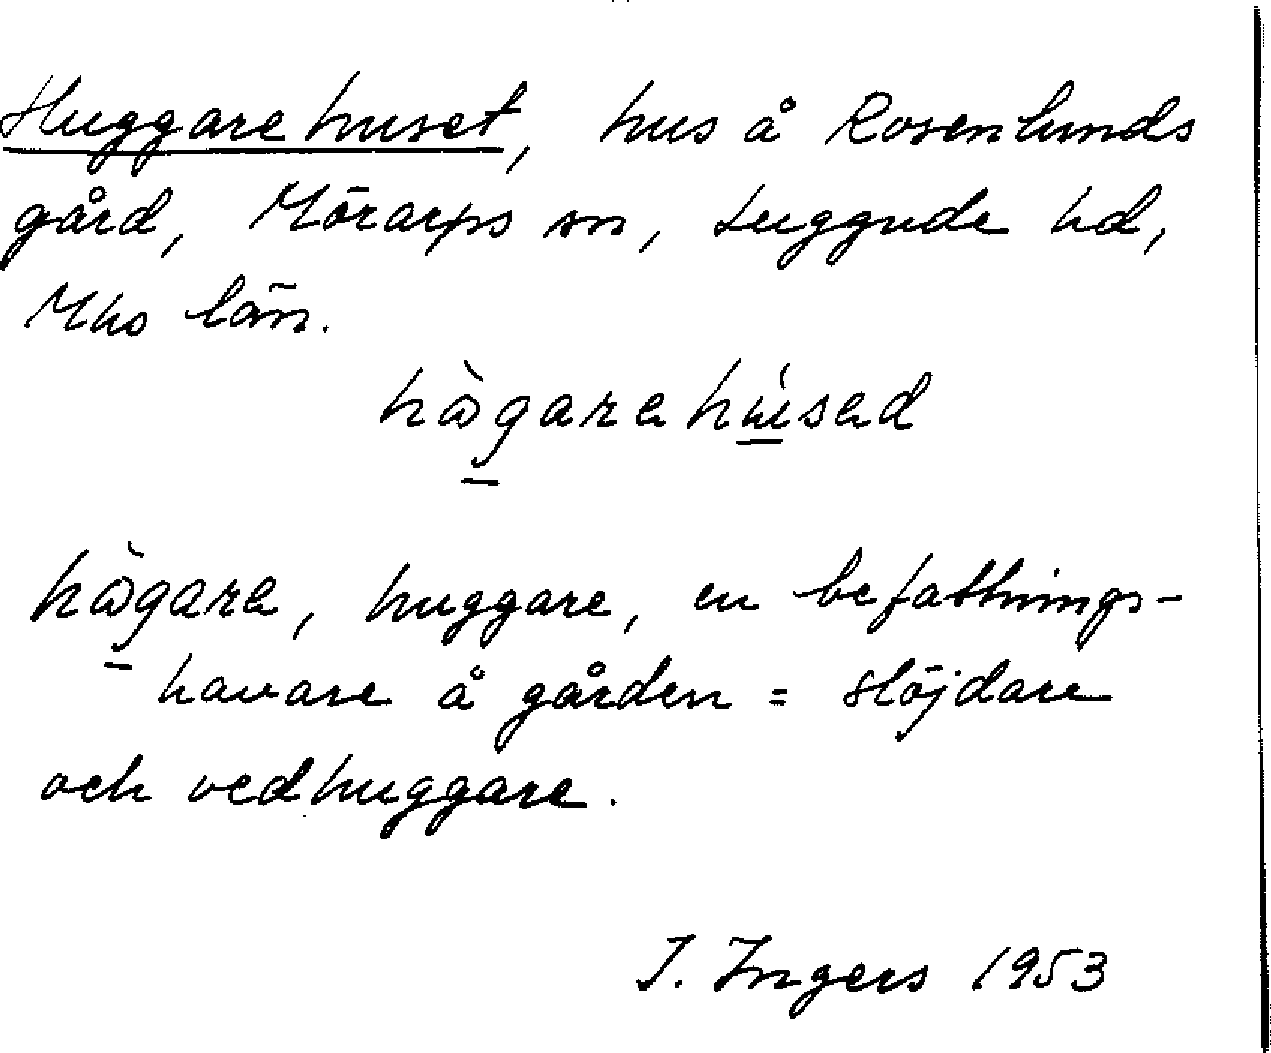 Huggarehuset, hus å Rosenlunds
gård, Mörarps sn, Luggude hd,
Mhs län.
hògarehúsed
hògare, huggare, en befattnings-
havare å gården = slöjdare
och vedhuggare.
I. Ingers 1953